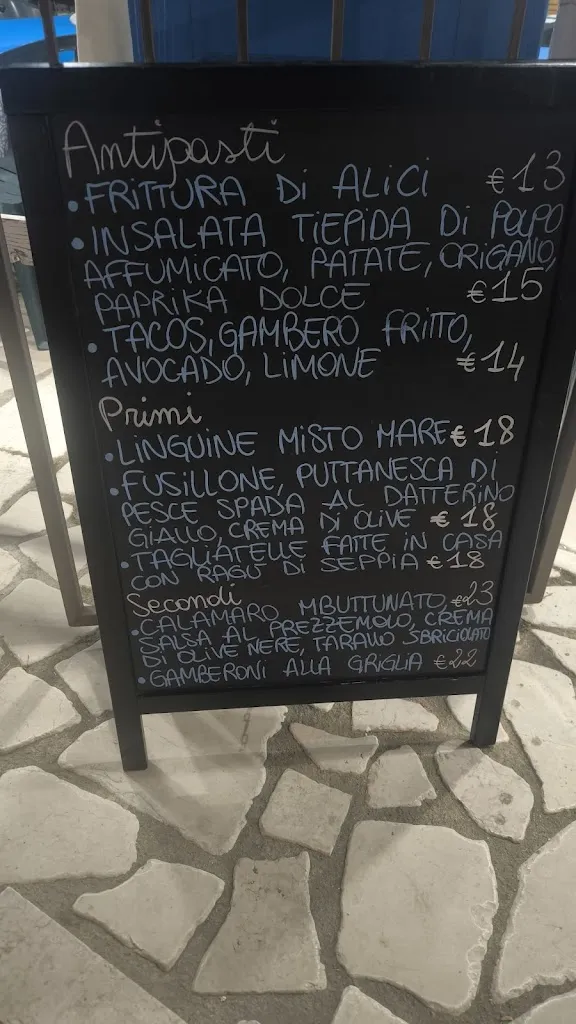 Antipasti
• FRITTURA Di ALICI €13
• INSALATA TIEPIDA Di POLPO
AFFUMICATO, PATATE, ORIGANO,
PAPRIKA DOLCE €15
• TACOS, GAMBERO FRITTO,
AVOCADO, LIMONE €14
Primi
• LINGUINE MISTO MARE €18
• FUSILLONE, PUTTANESCA DI
PESCE SPADA AL DATTERINO
GIALLO, CREMA DI OLIVE €18
• TAGLIATELLE FATTE IN CASA
CON RAGÙ DI SEPPIA €18
Secondi
• CALAMARO MBUTTUNATO, €23
SALSA AL PREZZEMOLO, CREMA
DI OLIVE NERE, TARALLO SBRICIOLATO
• GAMBERONI ALLA GRIGLIA €22